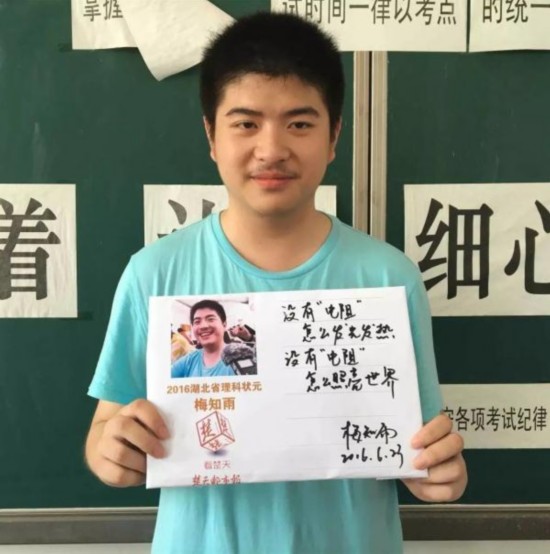 掌握
试时间一律以考点
的统一
着
细心
2016湖北省理科状元
梅知雨
看楚天
楚天都市报
没有"电阻"
怎么发光发热
没有"电阻"
怎么照亮世界
梅知雨
2016.6.23
各项考试纪律